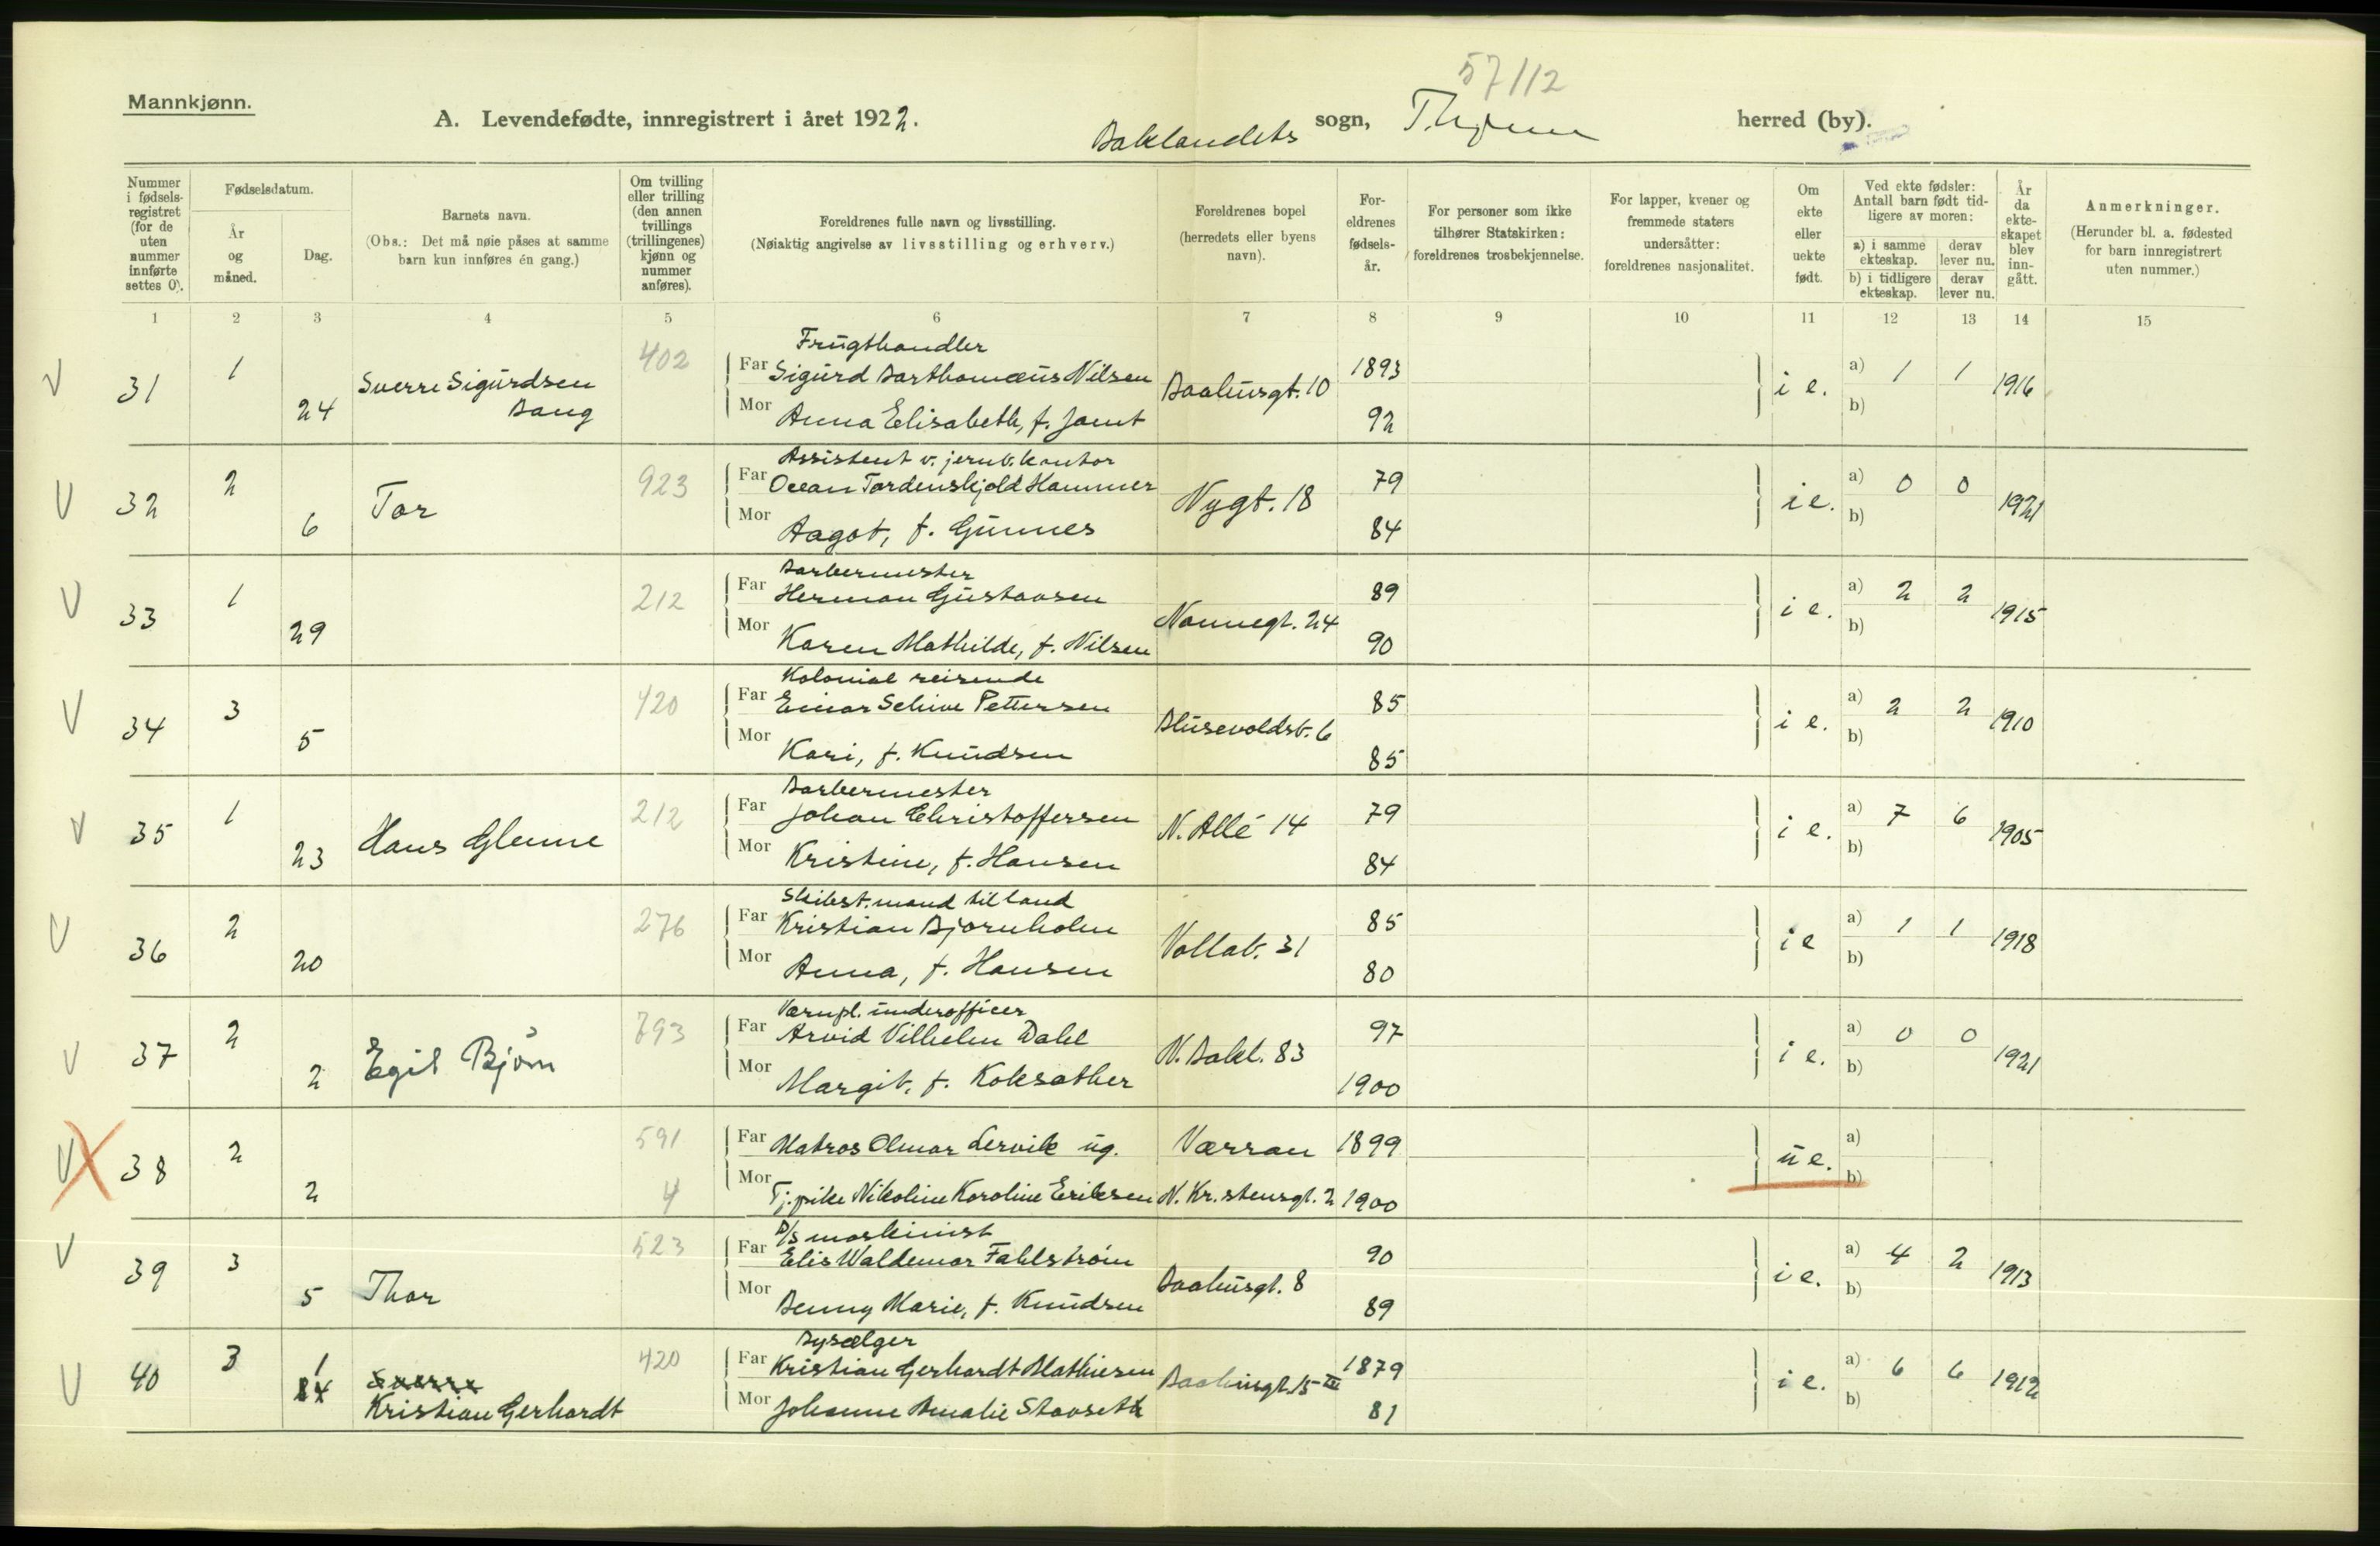 57/12
Mannkjønn.
A. Levendefødte, innregistrert i året 1922. Baklandets sogn, Thjem herred (by).
Nummer i fødsels-registret (for de uten nummer innførte settes 0).
Fødselsdatum.
År og måned.
Dag.
Barnets navn.
(Obs.: Det må nøie påses at samme barn kun innføres én gang.)
Om tvilling eller trilling (den annen tvillings (trillingenes) kjønn og nummer anføres).
Foreldrenes fulle navn og livsstilling.
(Nøiaktig angivelse av livsstilling og erhverv.)
Foreldrenes bopel (herredets eller byens navn).
For-eldrenes fødsels-år.
For personer som ikke tilhører Statskirken: foreldrenes trosbekjennelse.
For lapper, kvener og fremmede staters undersåtter: foreldrenes nasjonalitet.
Om ekte eller uekte født.
Ved ekte fødsler: Antall barn født tid-ligere av moren:
a) i samme ekteskap.
derav lever nu.
b) i tidligere ekteskap.
derav lever nu.
År da ekte-skapet blev inn-gått.
Anmerkninger.
(Herunder bl. a. fødested for barn innregistrert uten nummer.)
1 2 3 4 5 6 7 8 9 10 11 12 13 14 15
Frugthandler
V 31 1 24 Sverre Sigurdsen Bang 402 Far Sigurd Barthomæus Nilsen Baahusgt. 10 1893 i e. a) 1 1 1916
Mor Anna Elisabeth, f. Jamt 92 b)
Assistent v. jernb.kontor
V 32 2 6 Tor 923 Far Ocean Tordenskjold Hammer Nygt. 18 79 i e. a) 0 0 1921
Mor Aagot, f. Gunnes 84 b)
Barbermester
V 33 1 29 212 Far Herman Gustavsen Nonnegt. 24 89 i e. a) 2 2 1915
Mor Karen Mathilde, f. Nilsen 90 b)
Kolonial reisende
V 34 3 5 420 Far Einar Schive Pettersen Blusevoldsv. 6 85 i e. a) 2 2 1910
Mor Kari, f. Knudsen 85 b)
Barbermester
V 35 1 23 Hans Glenne 212 Far Johan Christoffersen N. Allé 14 79 i e. a) 7 6 1905
Mor Kristine, f. Hansen 84 b)
Skibst.mand til land
V 36 2 20 276 Far Kristian Bjørnholm Vollab. 31 85 i e a) 1 1 1918
Mor Anna, f. Hansen 80 b)
Værnpl. underofficer
V 37 2 2 Egil Bjørn 793 Far Arvid Vilhelm Dahl N. Bakl. 83 97 i e. a) 0 0 1921
Mor Margit, f. Koksæther 1900 b)
V 38 2 2 591 Far Matros Olmar Lervik ug. Værran 1899 u e. a)
4 Mor Tj.pike Nikoline Karoline Eriksen N. Kr.stensgt. 2 1900 b)
D/s maskinist
V 39 3 5 Thor 523 Far Elis Waldemar Fahlstrøm Baahusgt. 8 90 i e. a) 4 2 1913
Mor Benny Marie, f. Knudsen 89 b)
Bysælger
V 40 3 1 Sverre 420 Far Kristian Gerhardt Mathiesen Baahusgt. 15 III 1879 i e. a) 6 6 1912
Kristian Gerhardt Mor Johanne Amalie Stavseth 81 b)